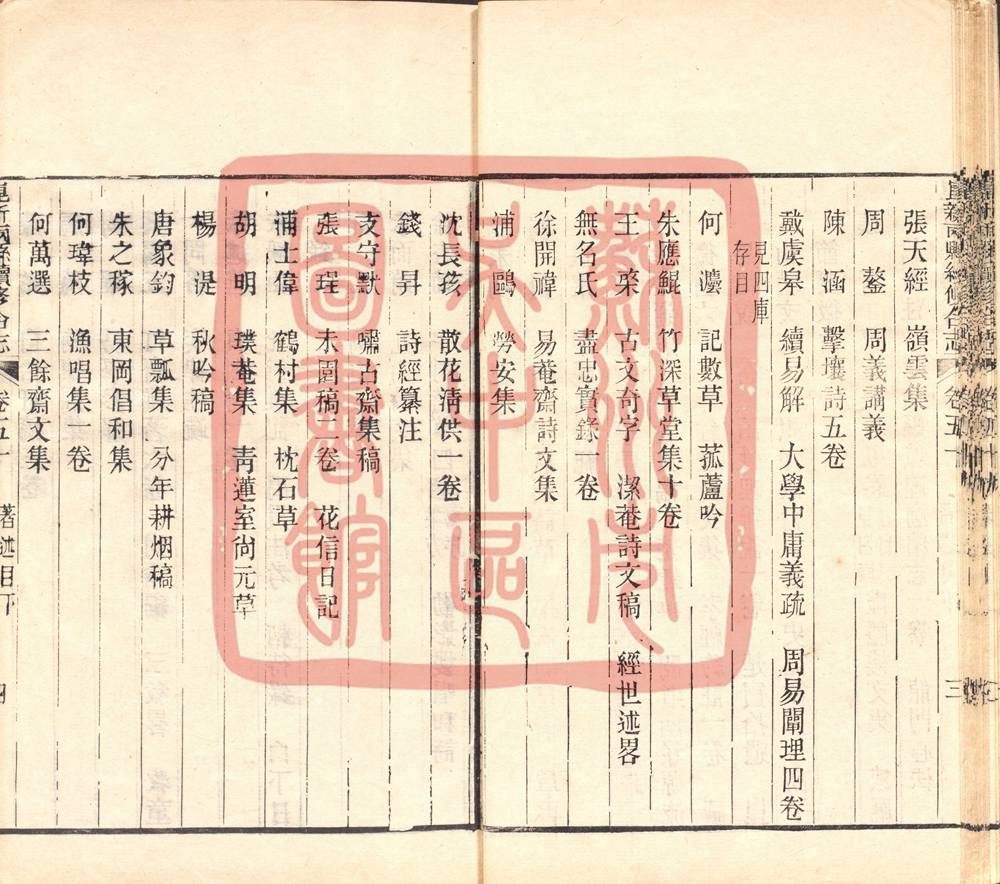 張天經　嶺雲集
周　鏊　周義講義
陳　涵　擊壤詩五卷
戴虞皋　續易解　大學中庸義疏　周易闡理四卷
見四庫
存目
何　　記數草　菰蘆吟
朱應鯤　竹深草堂集十卷
王　　古文奇字　潔菴詩文稿　經世述畧
無名氏　盡忠實錄一卷
徐開禕　易菴齋詩文集
浦　鷗　勞安集
沈長孩　散花清供一卷
錢　昇　詩經纂注
支守默　嘯古齋集稿
張　瑆　未園稿二卷　花信日記
浦士偉　鶴村集　枕石草
胡　明　璞菴集　青蓮室尚元草
楊　湜　秋吟稿
唐象鈞　草瓢集　分年耕烟稿
朱之稼　東岡倡和集
何瑋枝　漁唱集一卷
何萬選　三餘齋文集
崑新兩縣續修合志　卷五十　著述目下　四
蘇州市
吳中區
圖書館